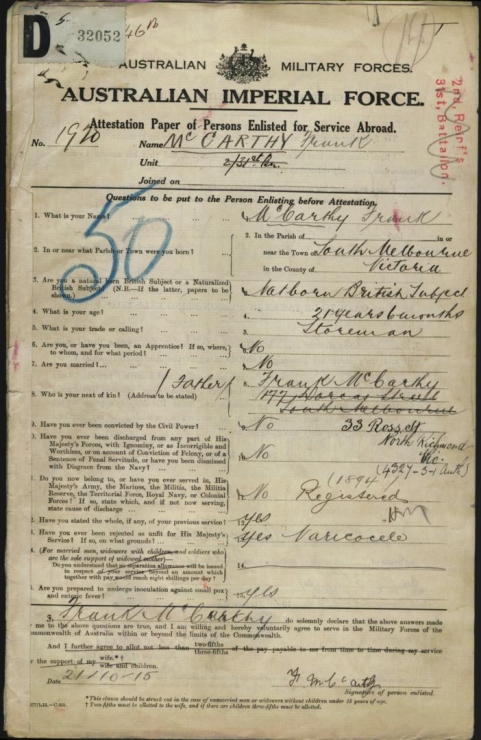 D
32052
AUSTRALIAN MILITARY FORCES.
AUSTRALIAN IMPERIAL FORCE.
2nd Reinf's
31st. Battalion.
Attestation Paper of Persons Enlisted for Service Abroad.
No. 1920 Name McCARTHY Frank
Unit 2/31st Bn
Joined on
Questions to be put to the Person Enlisting before Attestation.
50
1. What is your Name? McCarthy Frank
2. In or near what Parish or Town were you born? 2. In the Parish of in or
near the Town of South Melbourne
in the County of Victoria
3. Are you a natural born British Subject or a Naturalized
British Subject? (N.B.—If the latter, papers to be
shown) Nat born British Subject
4. What is your age? 21 years 6 months
5. What is your trade or calling? Storeman
6. Are you, or have you been, an Apprentice? If so, where,
to whom, and for what period? No
7. Are you married? No
8. Who is your next of kin? (Address to be stated) (Father) Frank McCarthy
177 Dorcas Street
South Melbourne
33 Ross St
North Richmond
Vic.
9. Have you ever been convicted by the Civil Power? No
Have you ever been discharged from any part of His
Majesty's Forces, with Ignominy, or as Incorrigible and
Worthless, or on account of Conviction of Felony, or of a
Sentence of Penal Servitude, or have you been dismissed
with Disgrace from the Navy? No
Do you now belong to, or have you ever served in, His
Majesty's Army, the Marines, the Militia, the Militia
Reserve, the Territorial Force, Royal Navy, or Colonial
Forces? If so, state which, and if not now serving,
state cause of discharge No Registered
(1894)
Have you stated the whole, if any, of your previous service? yes
Have you ever been rejected as unfit for His Majesty's
Service? If so, on what grounds? yes Varicocele
(For married men, widowers with children and soldiers who
are the sole support of widowed mother)—
Do you understand that no separation allowance will be issued
in respect of your service beyond an amount which
together with pay would reach eight shillings per day? 14.
Are you prepared to undergo inoculation against small pox
and enteric fever? yes
I, Frank McCarthy do solemnly declare that the above answers made
by me to the above questions are true, and I am willing and hereby voluntarily agree to serve in the Military Forces of the
Commonwealth of Australia within or beyond the limits of the Commonwealth.
And I further agree to allot not less than two-fifths
three-fifths of the pay payable to me from time to time during my service
for the support of my wife.*†
wife and children.
Date 21-10-15
F McCarthy
Signature of person enlisted.
*This clause should be struck out in the case of unmarried men or widowers without children under 18 years of age.
† Two-fifths must be allotted to the wife, and if there are children three-fifths must be allotted.